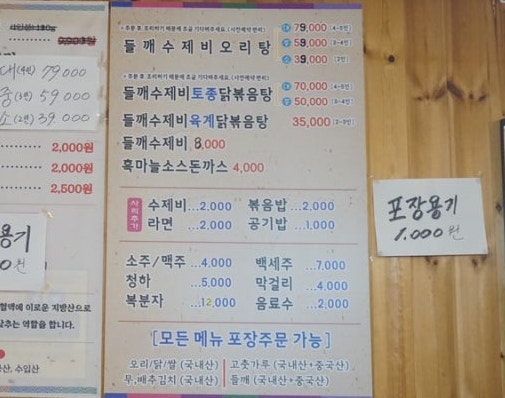 9,000원
대(4인) 79,000
중(3인) 59,000
소(2인) 39,000
2,000원
2,000원
2,500원
용기
0원
혈액에 이로운 지방산으로
낮추는 역할을 합니다.
산, 수입산
* 주문 후 조리하기 때문에 조금 기다려주세요. (사전예약 편리)
들깨수제비오리탕
대 79,000 (4~5인)
중 59,000 (3~4인)
소 39,000 (2인)
* 주문 후 조리하기 때문에 조금 기다려주세요. (사전예약 편리)
들깨수제비토종닭볶음탕
대 70,000 (4~5인)
중 50,000 (3~4인)
들깨수제비육계닭볶음탕 35,000 (2~3인)
들깨수제비 8,000
흑마늘소스돈까스 4,000
사리추가
수제비...2,000 볶음밥...2,000
라면...2,000 공기밥...1,000
소주/맥주...4,000 백세주...7,000
청하...5,000 막걸리...4,000
복분자...12,000 음료수...2,000
[모든 메뉴 포장주문 가능]
오리/닭/쌀 (국내산) 고춧가루 (국내산+중국산)
무,배추김치 (국내산) 들깨 (국내산+중국산)
포장용기
1,000원